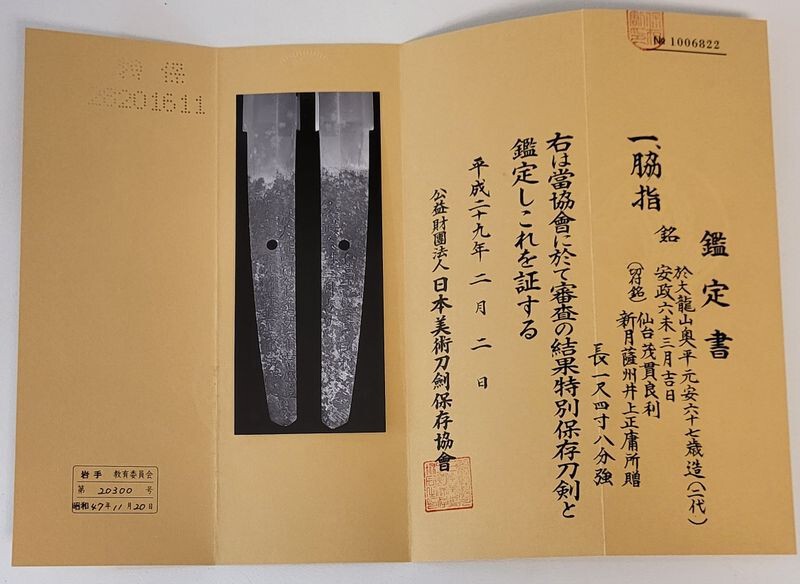 № 1006822
鑑定書
一、脇指
銘
於大龍山奥平元安六十七歳造(二代)
安政六未三月吉日
(切付銘)
仙台茂貫良利
新月薩州井上正庸所贈
長一尺四寸八分強
右は當協會に於て審査の結果特別保存刀剣と
鑑定しこれを証する
平成二十九年二月二日
公益財團法人日本美術刀剣保存協會
特保
28201611
岩手 教育委員会
第 20300 号
昭和47年11月20日